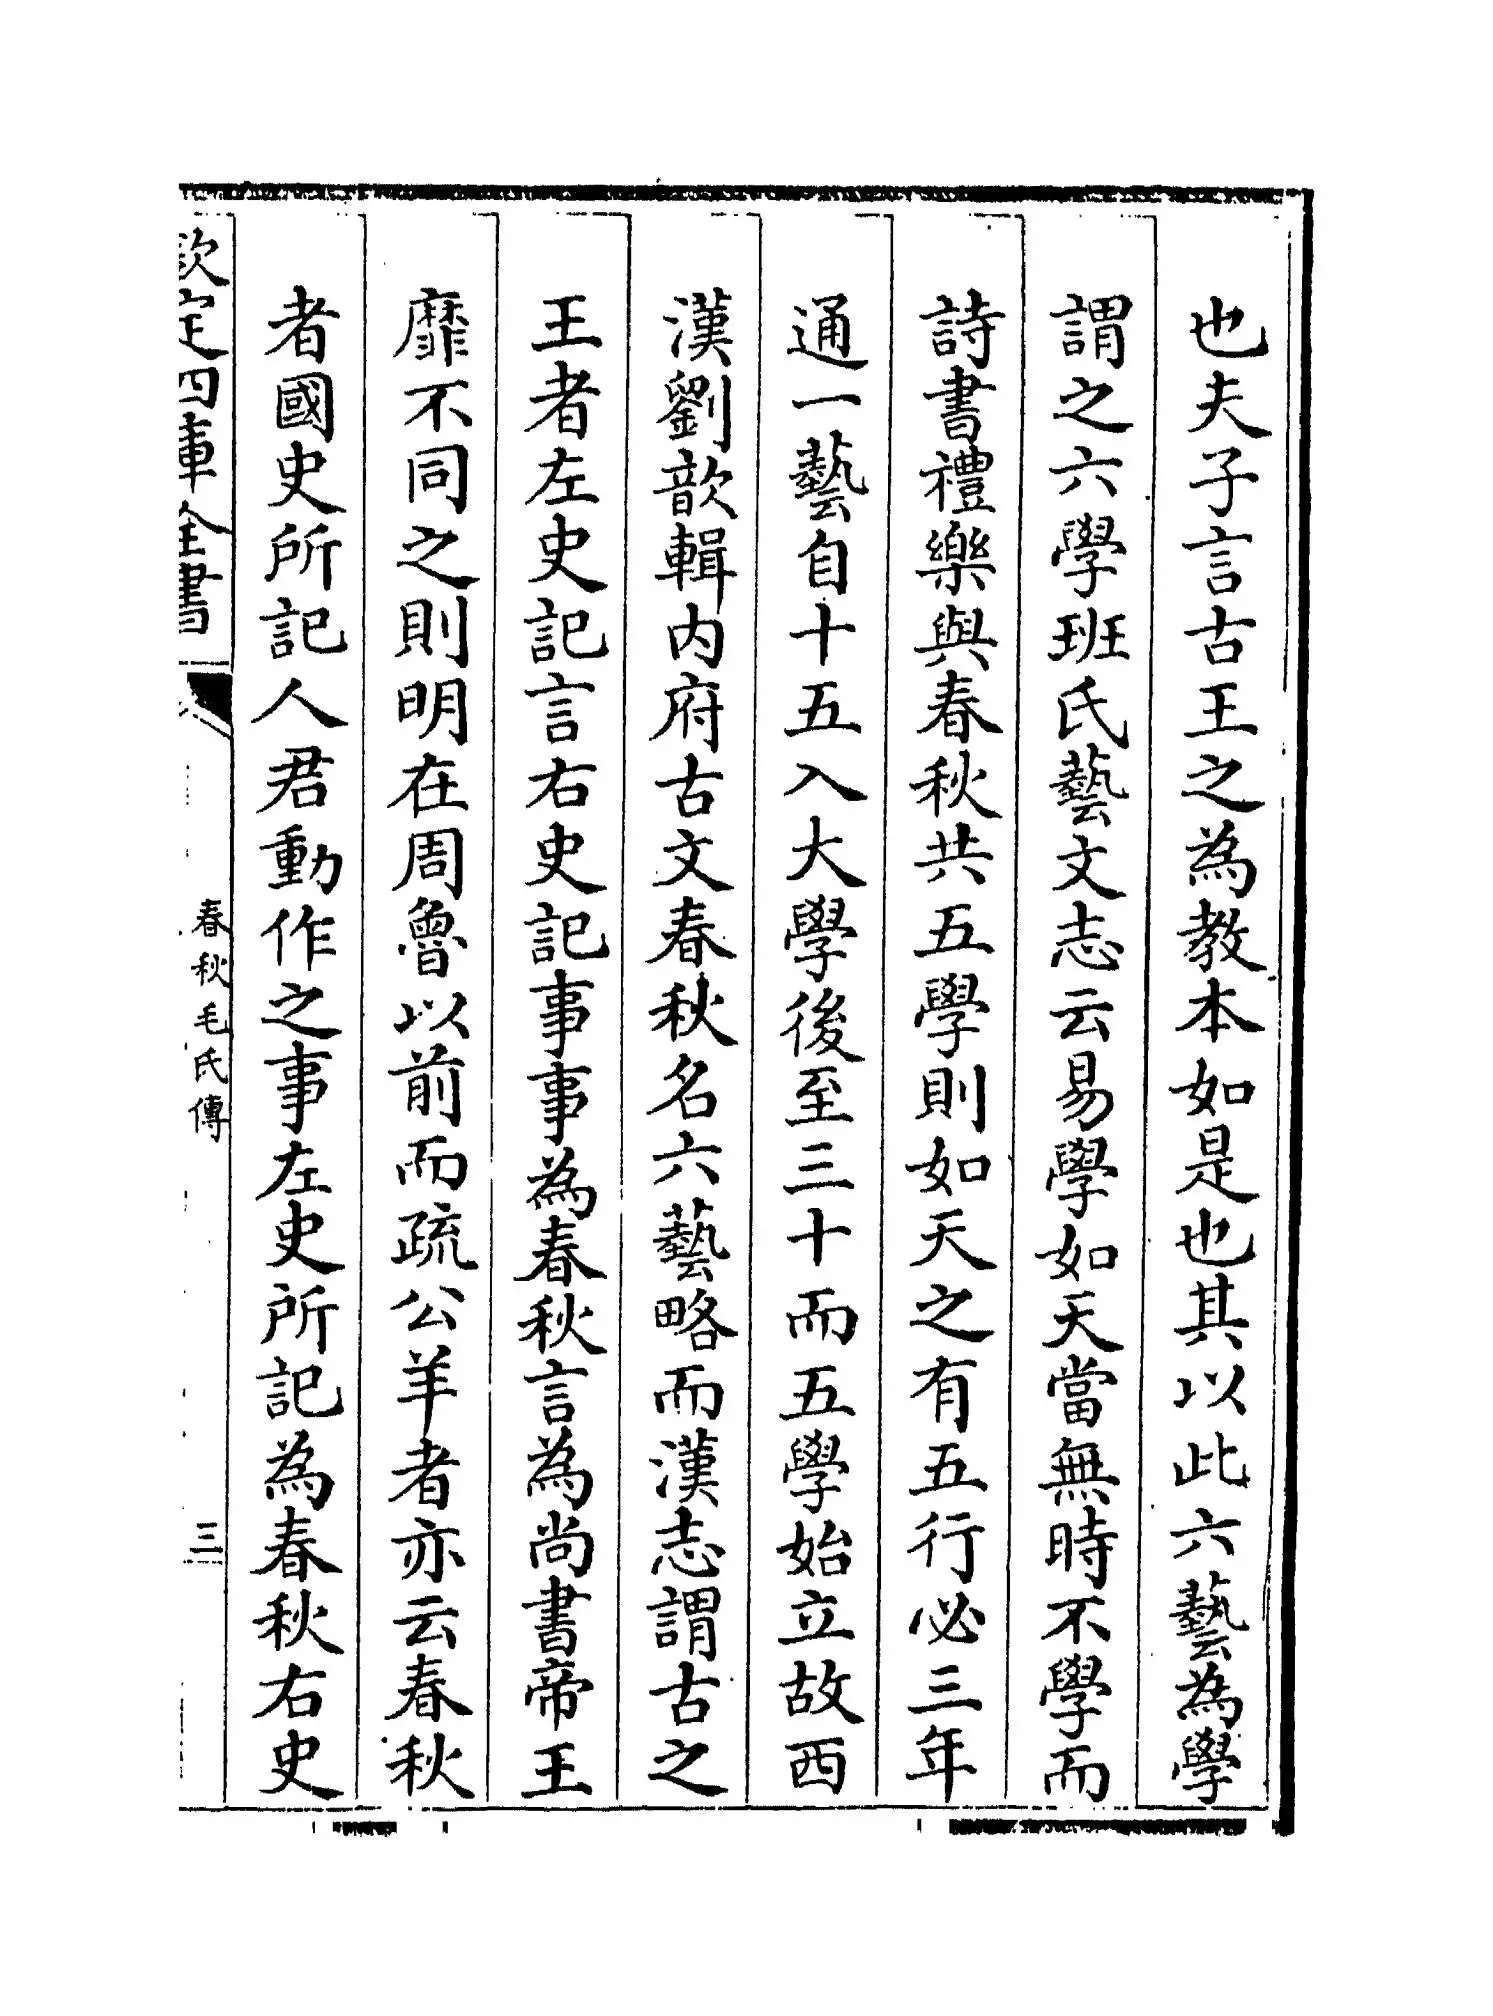 也夫子言古王之為教本如是也其以此六藝為學
謂之六學班氏藝文志云易學如天當無時不學而
詩書禮樂與春秋共五學則如天之有五行必三年
通一藝自十五入大學後至三十而五學始立故西
漢劉歆輯内府古文春秋名六藝略而漢志謂古之
王者左史記言右史記事事為春秋言為尚書帝王
靡不同之則明在周魯以前而疏公羊者亦云春秋
者國史所記人君動作之事左史所記為春秋右史
欽定四庫全書
春秋毛氏傳
三